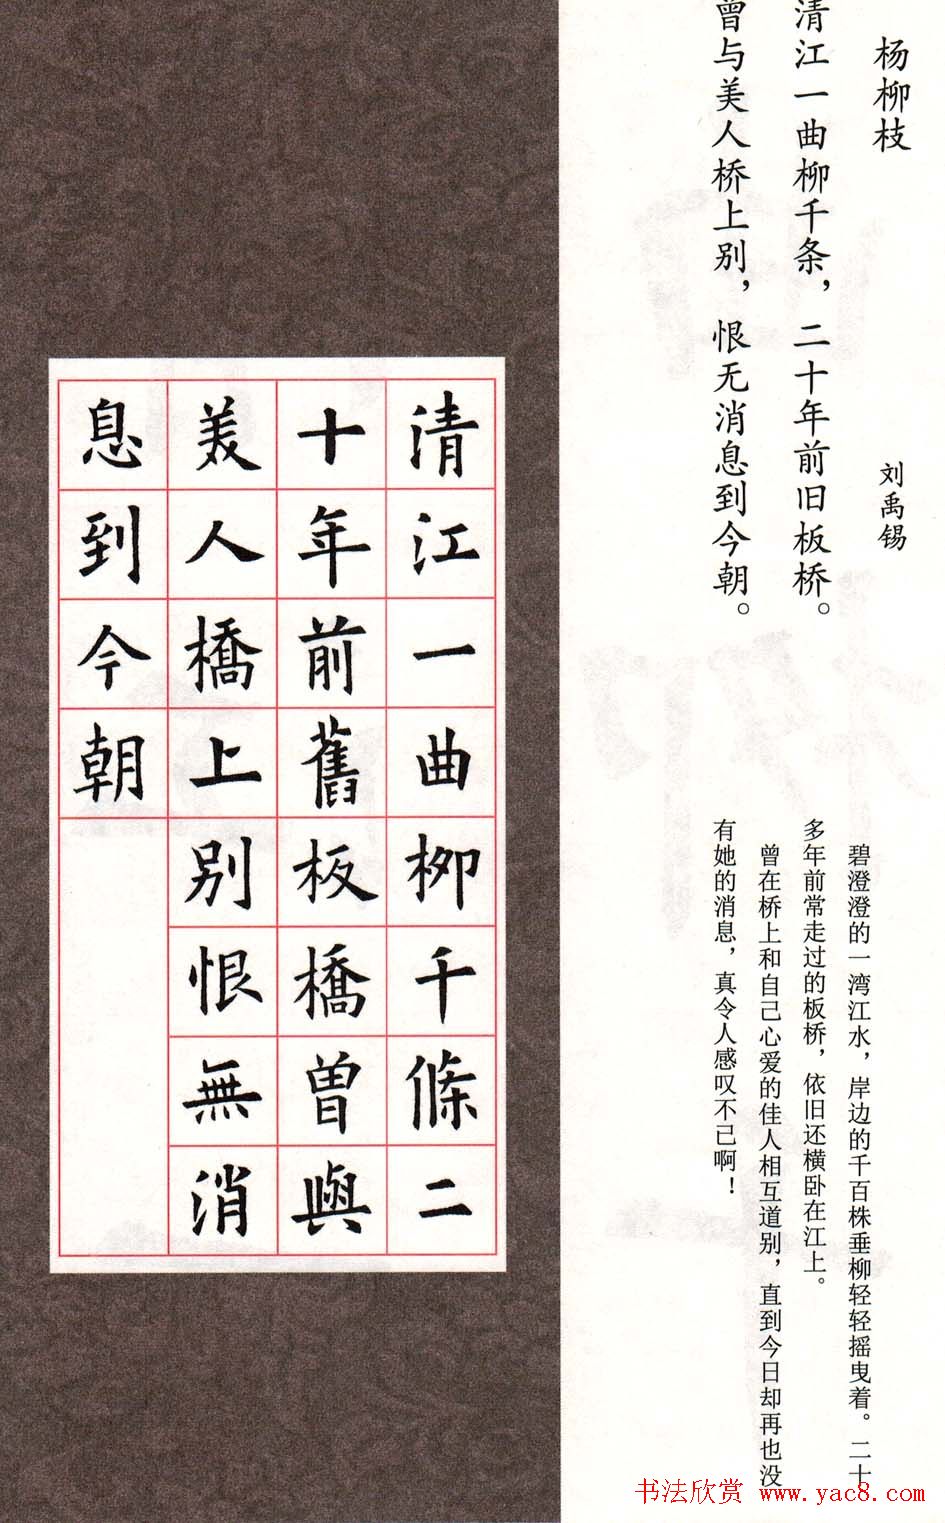 杨柳枝
刘禹锡
清江一曲柳千条，二十年前旧板桥。
曾与美人桥上别，恨无消息到今朝。
碧澄澄的一湾江水，岸边的千百株垂柳轻轻摇曳着。二十
多年前常走过的板桥，依旧还横卧在江上。
曾在桥上和自己心爱的佳人相互道别，直到今日却再也没
有她的消息，真令人感叹不已啊！
清江一曲柳千條二
十年前舊板橋曽與
美人橋上别恨無消
息到今朝
书法欣赏 www.yac8.com